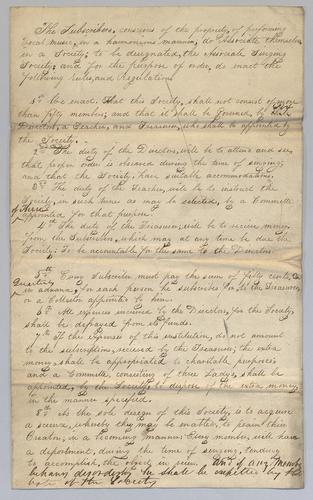 The Subscribers, conscious of the propriety of performing
vocal music, in a harmonious manner, do associate themselves
in a Society, to be designated, the Associate Singing
Society; and for the purpose of order, do enact the
following rules, and Regulations
1st We enact. That this Society, shall not consist of more
than fifty members; and that it shall be governed, by
Directors, a Teacher, and Treasurer, who shall be appointed by
the Society.
2nd The duty of the Directors, will be to attend and see,
that proper order is observed during the time of singing;
and that the Society, have suitable accommodations.
3rd The duty of the Teacher, will be to instruct the
Society, in such tunes as may be selected, by a Committee
of three appointed for that purpose.
4th The duty of the Treasurer, will be to receive money
from the Subscribers, which may at any time be due the
Society. To be accountable for the same to the Directors.
5th Every Subscriber must pay the sum of fifty cents
Quarterly in advance, for each person he subscribes for to the Treasurer,
or a Collector appointed by him.
6th All expenses incurred by the Directors, for the Society,
shall be defrayed from its funds.
7th If the expenses of this institution, do not amount
to the subscriptions, received by the Treasurer; the extra
money shall be appropriated to charitable purposes
and a Committee, consisting of three Ladys, shall be
appointed, by the Society, to dispose of the extra money,
in the manner specified.
8th As the sole design of this Society, is to acquire
a science, whereby they may be enabled, to praise their
Creator, in a becoming manner. Every member, will have
a deportment, during the time of singing, tending
to accomplish, the object in view. And if any Member
behave disorderly he shall be expelled by the
vote of the Society